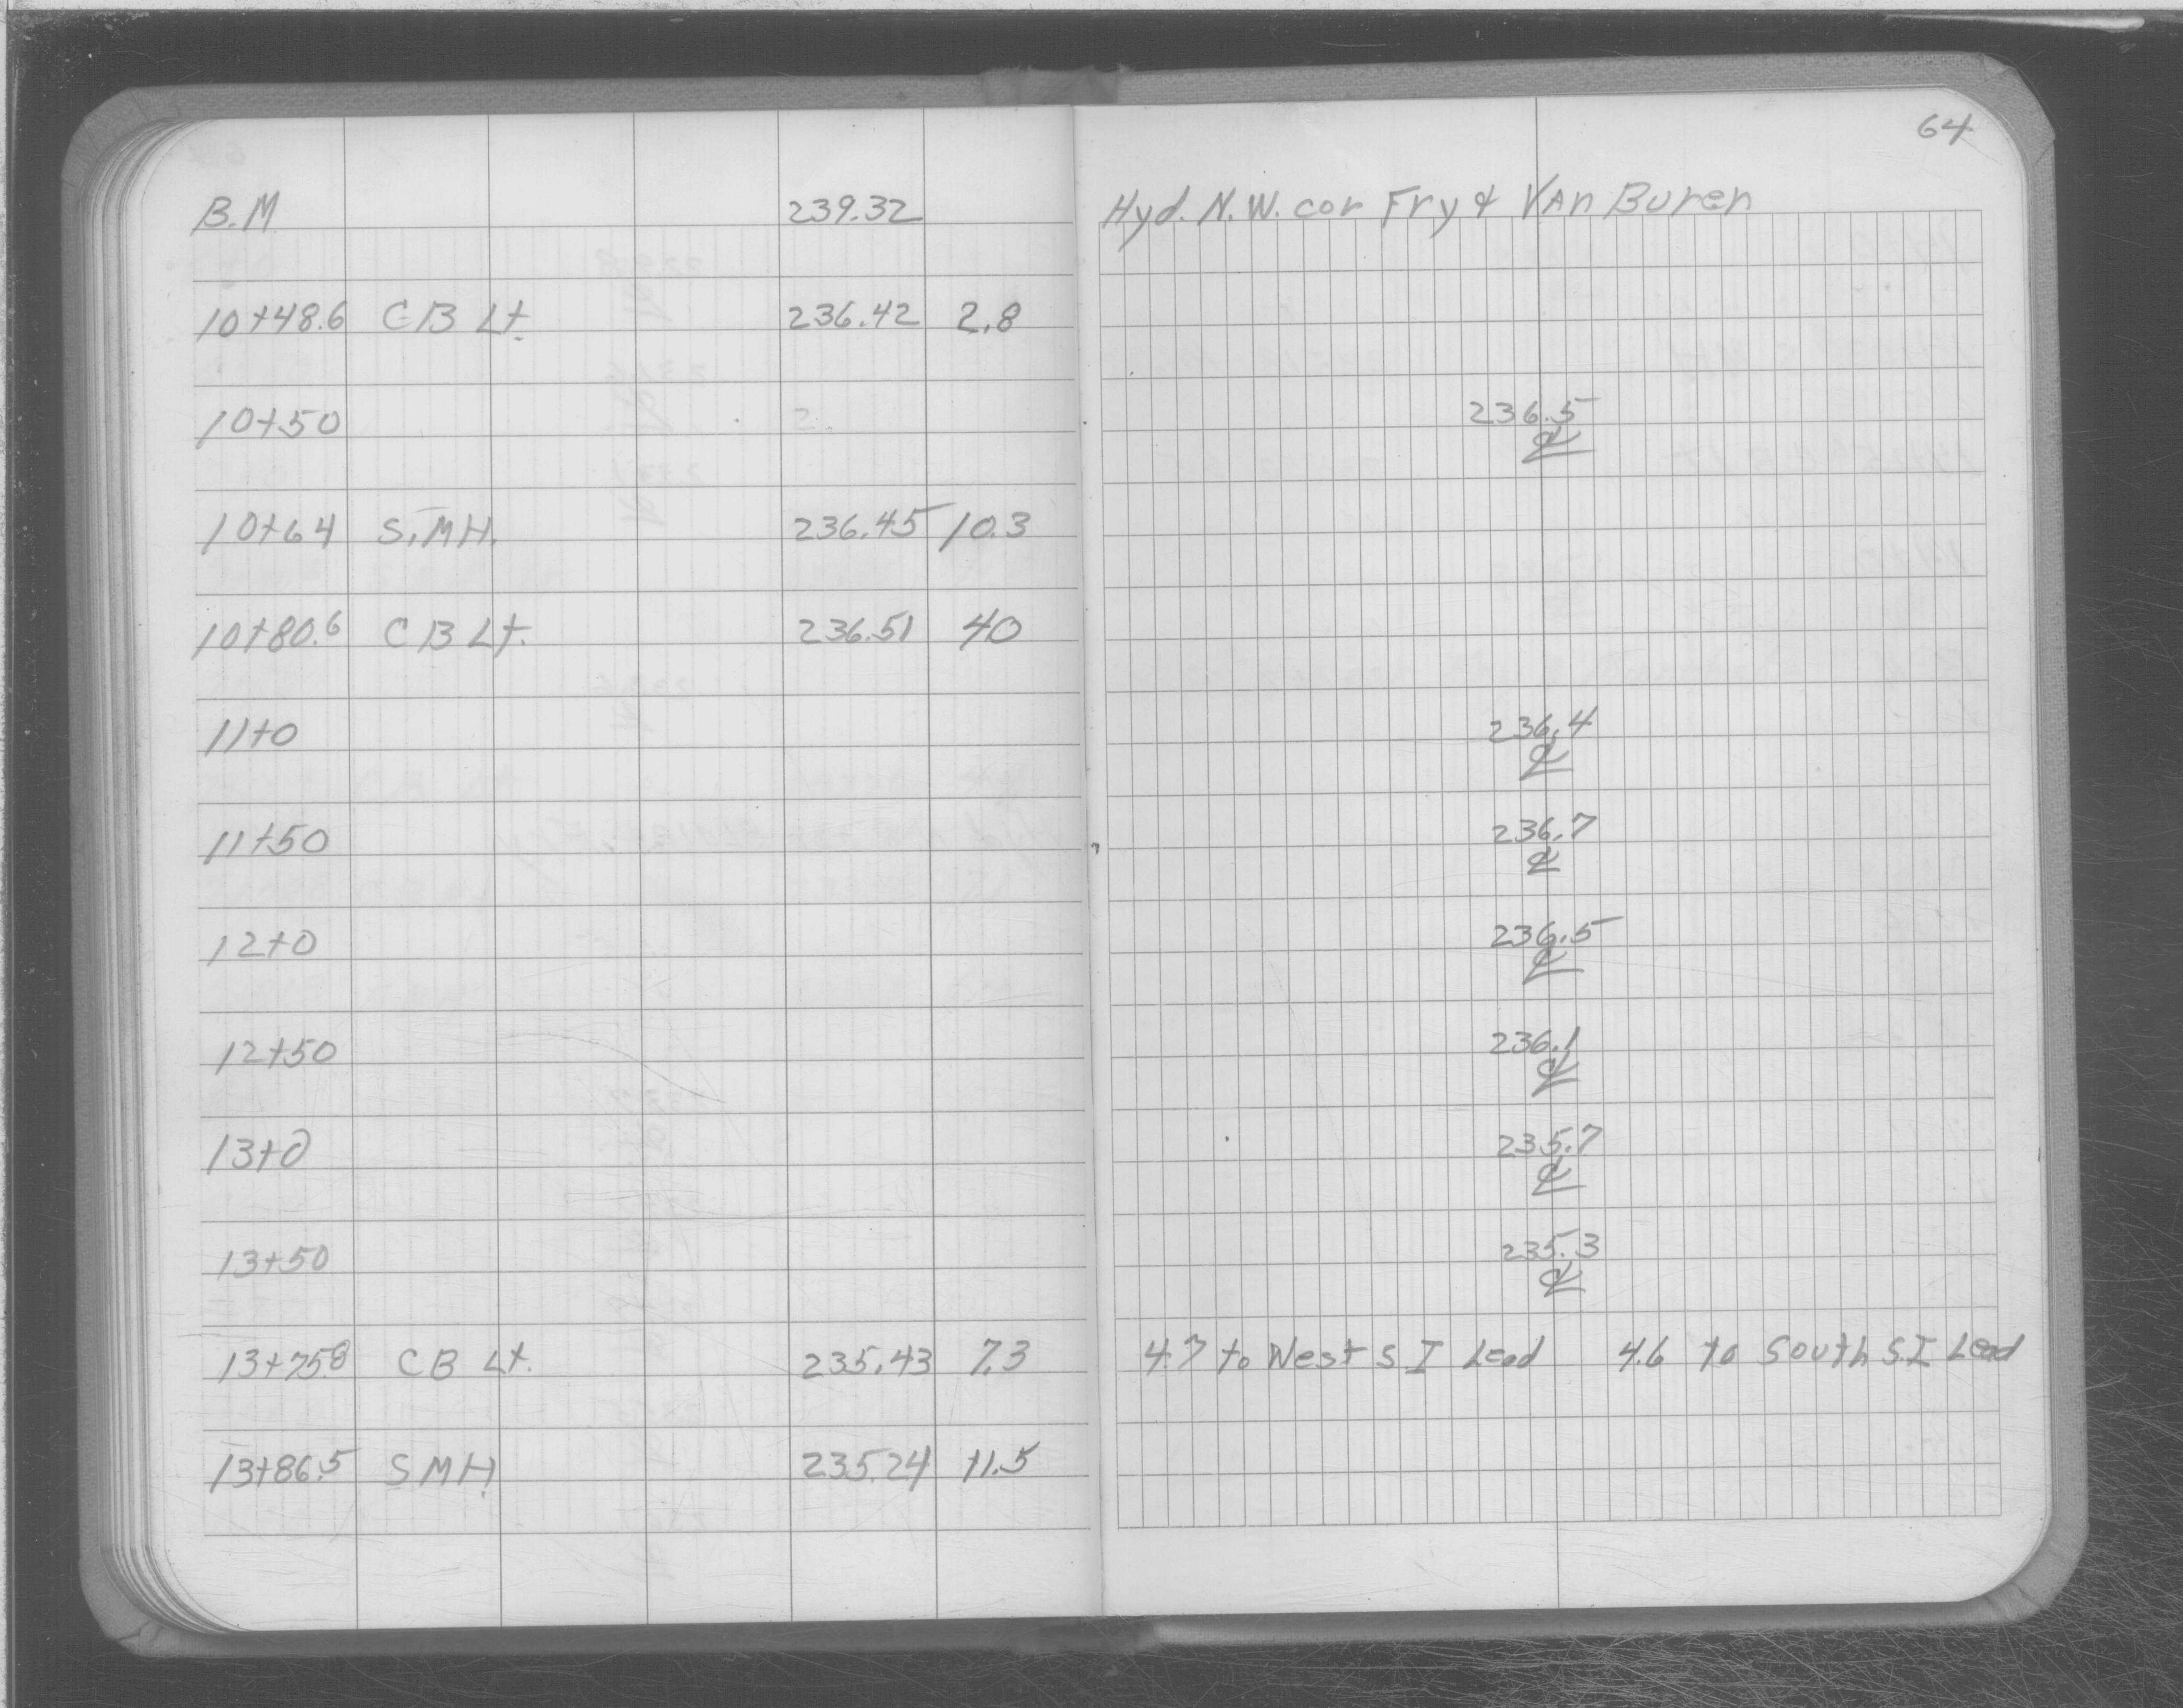 64
B.M 239.32 Hyd. N.W. cor Fry & Van Buren
10+48.6 CB Lt. 236.42 2.8
10+50 236.5
℄
10+64 S.MH. 236.45 10.3
10+80.6 CB Lt. 236.51 40
11+0 236.4
℄
11+50 236.7
℄
12+0 236.5
℄
12+50 236.1
℄
13+0 235.7
℄
13+50 235.3
℄
13+75.8 CB Lt. 235.43 7.3 4.7 to West S I Lead 4.6 to South S.I Lead
13+86.5 S MH 235.24 11.5